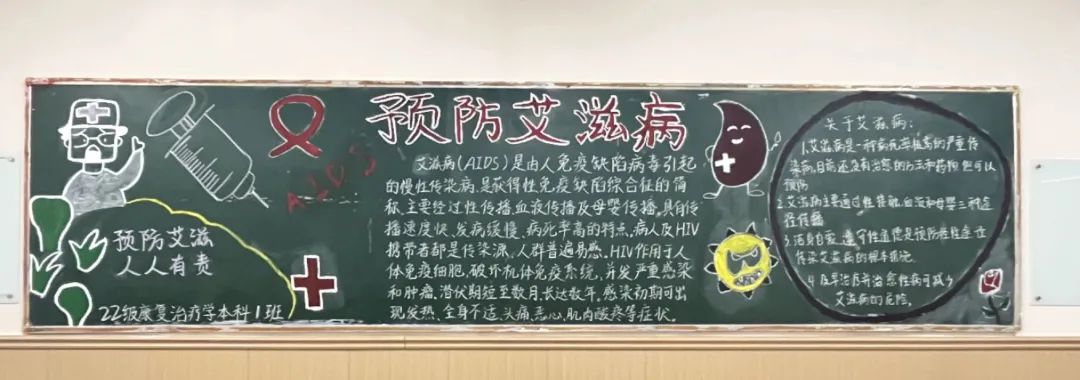 预防艾滋病
AIDS
预防艾滋
人人有责
22级康复治疗学本科1班
艾滋病(AIDS)是由人免疫缺陷病毒引起
的慢性传染病,是获得性免疫缺陷综合征的简
称,主要经过性传播,血液传播及母婴传播。具有传
播速度快、发病缓慢、病死率高的特点。病人及HIV
携带者都是传染源。人群普遍易感。HIV作用于人
体免疫细胞,破坏机体免疫系统,并发严重感染
和肿瘤。潜伏期短至数月,长达数年。感染初期可出
现发热、全身不适、头痛、恶心、肌肉酸疼等症状。
关于艾滋病:
1.艾滋病是一种病死率极高的严重传
染病,目前还没有治愈的办法和药物,但可以
预防
2.艾滋病主要通过性接触,血液和母婴三种途
径传播
3.洁身自爱、遵守性道德是预防经性途径
传染艾滋病的根本
4.及早治疗并治愈性病可减少
艾滋病的危险。